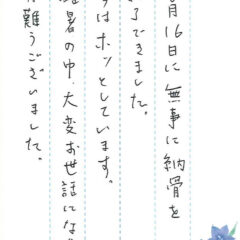 月16日に無事に納骨を
了できました。
はホッとしています。
暑の中、大変お世話にな
難うございました。